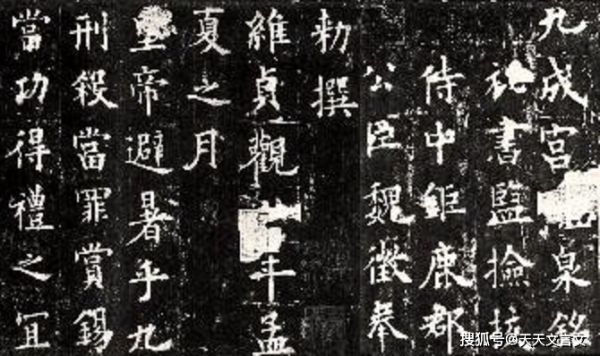 九成宮泉銘
祕書監撿挍
侍中鉅鹿郡
公臣魏徵奉
勅撰
維貞觀年孟
夏之月
皇帝避暑乎九
刑殺當罪賞錫
當功得禮之宜
搜狐号@天天文言文